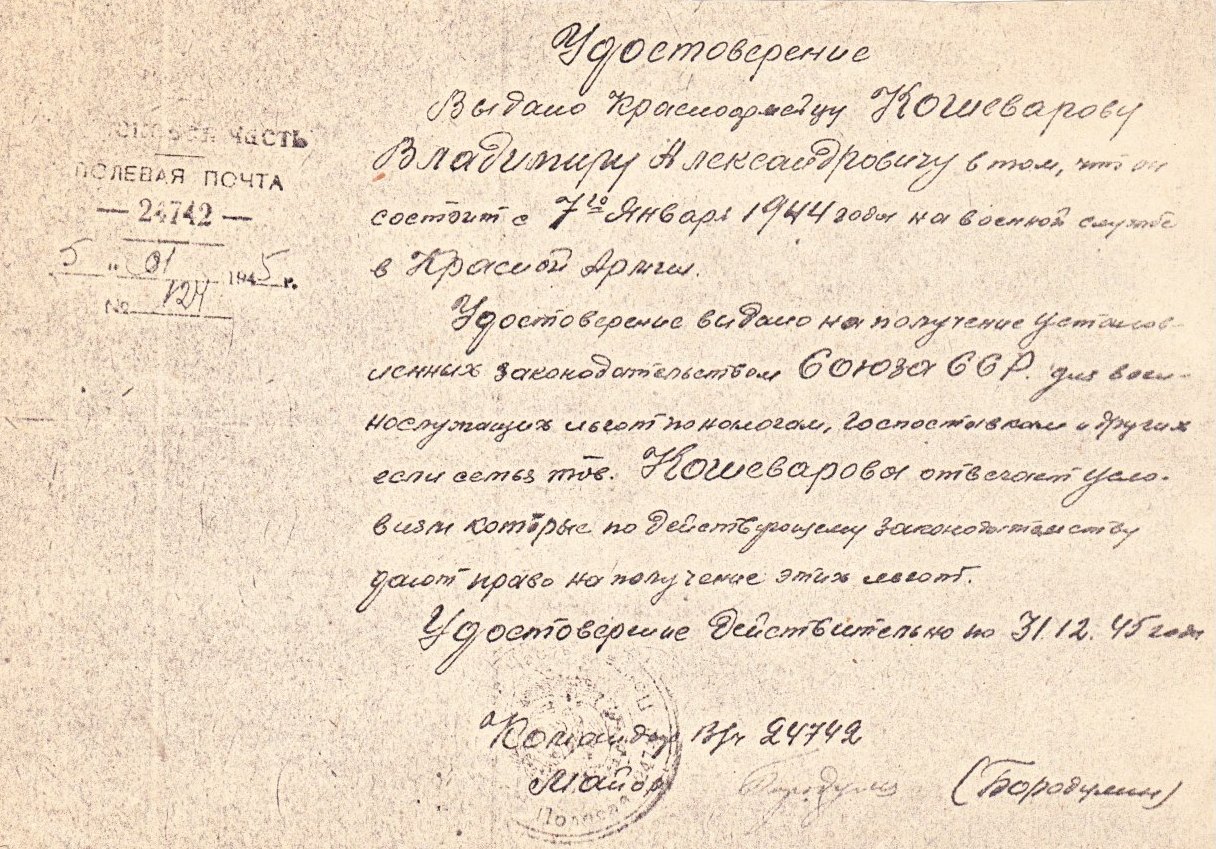 Удостоверение
Выдано Красноармейцу Кошеварову
Владимиру Александровичу в том, что он
состоит с 7го Января 1944 года на военной службе
в Красной Армии.
Удостоверение выдано на получение установ-
ленных законодательством Союза ССР. для воен-
нослужащих льгот по налогам, госпоставкам и других
если семья тов. Кошеварова отвечает усло-
виям которые по действующему законодательству
дают право на получение этих льгот.
Удостоверение действительно по 31.12.45 года
часть
ПОЛЕВАЯ ПОЧТА
— 24742 —
5 " 01 1945 г.
№ 124
Командир В/ч 24742
Майор (Бородулин)